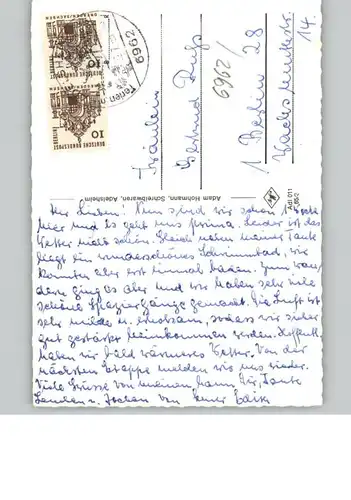 6962
10
DEUTSCHE BUNDESPOST
10
DEUTSCHE BUNDESPOST
Ferien
6962/
Fräulein
1 Berlin 28
14.
Adam Hofmann, Schreibwaren, Adelsheim
Adl 011
Ihr Lieben! Nun sind wir schon 1 Woche
hier und es geht uns prima. Leider ist das
Wetter nicht schön. Gleich neben meiner Tante
liegt ein wunderschönes Schwimmbad, wir
konnten aber erst einmal baden. Zum wan-
dern ging es aber und wir haben sehr viele
schöne Spaziergänge gemacht. Die Luft ist
sehr milde u. erholsam, sodass wir sicher
gut gestärkt heimkommen werden. Hoffentl.
haben wir bald wärmeres Wetter. Von der
nächsten Etappe melden wir uns wieder.
Viele Grüsse von meinem Mann, Tante
u. Jochen von Eurer